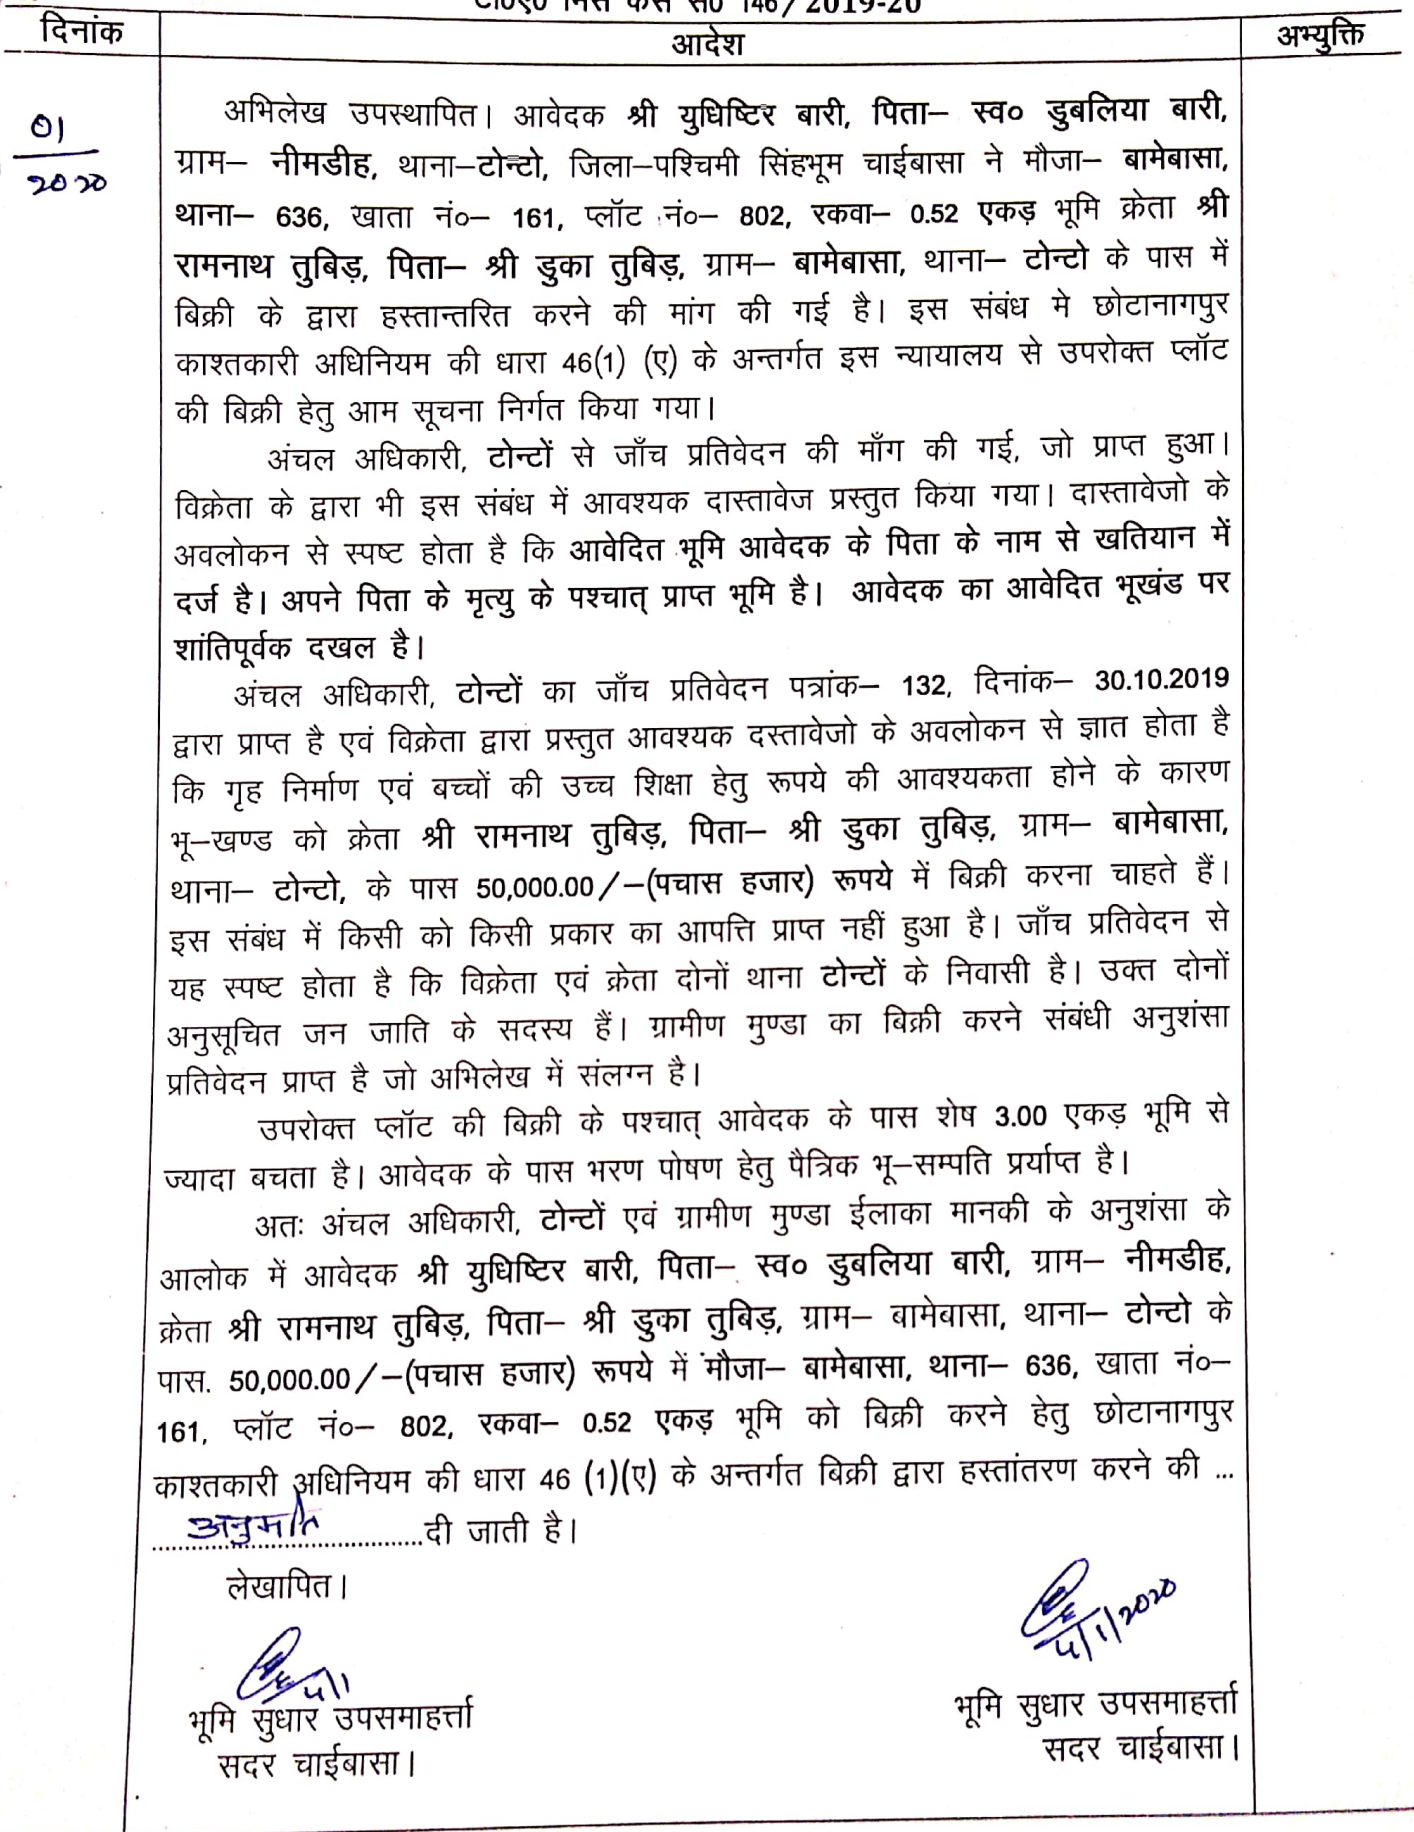 टी०ए० मिस केस सं० 146/2019-20
दिनांक
आदेश
अभ्युक्ति
01
2020
अभिलेख उपस्थापित। आवेदक श्री युधिष्टिर बारी, पिता– स्व० डुबलिया बारी,
ग्राम– नीमडीह, थाना–टोन्टो, जिला–पश्चिमी सिंहभूम चाईबासा ने मौजा– बामेबासा,
थाना– 636, खाता नं०– 161, प्लॉट नं०– 802, रकवा– 0.52 एकड़ भूमि क्रेता श्री
रामनाथ तुबिड़, पिता– श्री डुका तुबिड़, ग्राम– बामेबासा, थाना– टोन्टो के पास में
बिक्री के द्वारा हस्तान्तरित करने की मांग की गई है। इस संबंध मे छोटानागपुर
काश्तकारी अधिनियम की धारा 46(1) (ए) के अन्तर्गत इस न्यायालय से उपरोक्त प्लॉट
की बिक्री हेतु आम सूचना निर्गत किया गया।
अंचल अधिकारी, टोन्टों से जाँच प्रतिवेदन की माँग की गई, जो प्राप्त हुआ।
विक्रेता के द्वारा भी इस संबंध में आवश्यक दास्तावेज प्रस्तुत किया गया। दास्तावेजो के
अवलोकन से स्पष्ट होता है कि आवेदित भूमि आवेदक के पिता के नाम से खतियान में
दर्ज है। अपने पिता के मृत्यु के पश्चात् प्राप्त भूमि है। आवेदक का आवेदित भूखंड पर
शांतिपूर्वक दखल है।
अंचल अधिकारी, टोन्टों का जाँच प्रतिवेदन पत्रांक– 132, दिनांक– 30.10.2019
द्वारा प्राप्त है एवं विक्रेता द्वारा प्रस्तुत आवश्यक दस्तावेजो के अवलोकन से ज्ञात होता है
कि गृह निर्माण एवं बच्चों की उच्च शिक्षा हेतु रूपये की आवश्यकता होने के कारण
भू–खण्ड को क्रेता श्री रामनाथ तुबिड़, पिता– श्री डुका तुबिड़, ग्राम– बामेबासा,
थाना– टोन्टो, के पास 50,000.00/–(पचास हजार) रूपये में बिक्री करना चाहते हैं।
इस संबंध में किसी को किसी प्रकार का आपत्ति प्राप्त नहीं हुआ है। जाँच प्रतिवेदन से
यह स्पष्ट होता है कि विक्रेता एवं क्रेता दोनों थाना टोन्टों के निवासी है। उक्त दोनों
अनुसूचित जन जाति के सदस्य हैं। ग्रामीण मुण्डा का बिक्री करने संबंधी अनुशंसा
प्रतिवेदन प्राप्त है जो अभिलेख में संलग्न है।
उपरोक्त प्लॉट की बिक्री के पश्चात् आवेदक के पास शेष 3.00 एकड़ भूमि से
ज्यादा बचता है। आवेदक के पास भरण पोषण हेतु पैत्रिक भू–सम्पति प्रर्याप्त है।
अतः अंचल अधिकारी, टोन्टों एवं ग्रामीण मुण्डा ईलाका मानकी के अनुशंसा के
आलोक में आवेदक श्री युधिष्टिर बारी, पिता– स्व० डुबलिया बारी, ग्राम– नीमडीह,
क्रेता श्री रामनाथ तुबिड़, पिता– श्री डुका तुबिड़, ग्राम– बामेबासा, थाना– टोन्टो के
पास. 50,000.00/–(पचास हजार) रूपये में मौजा– बामेबासा, थाना– 636, खाता नं०–
161, प्लॉट नं०– 802, रकवा– 0.52 एकड़ भूमि को बिक्री करने हेतु छोटानागपुर
काश्तकारी अधिनियम की धारा 46 (1)(ए) के अन्तर्गत बिक्री द्वारा हस्तांतरण करने की ...
अनुमति दी जाती है।
लेखापित।
4/1/2020
4/1
भूमि सुधार उपसमाहर्त्ता
भूमि सुधार उपसमाहर्त्ता
सदर चाईबासा।
सदर चाईबासा।